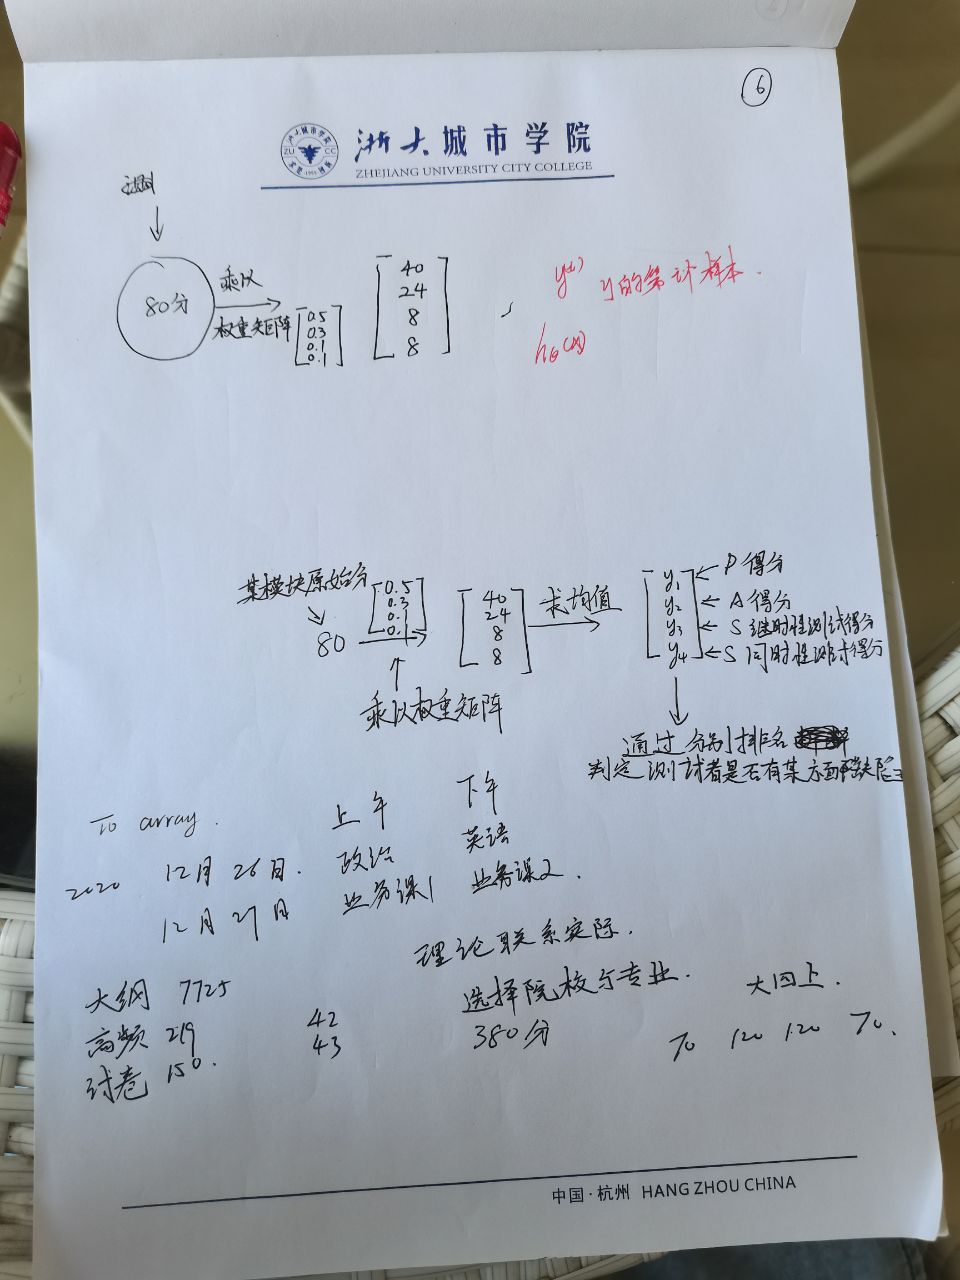 6
浙大城市学院
ZHEJIANG UNIVERSITY CITY COLLEGE
ZU CC
80分
乘以
权重矩阵
0.5
0.3
0.1
0.1
40
24
8
8
y⁽ⁱ⁾ y的第i个样本.
hθ(x)
某模块原始分
80
0.5
0.3
0.1
0.1
乘以权重矩阵
40
24
8
8
求均值
y₁ ← P 得分
y₂ ← A 得分
y₃ ← S 继时性测试得分
y₄ ← S 同时性测试得分
通过分别排名
判定测试者是否有某方面缺陷
To array.
上午 下午
2020 12月26日. 政治 英语
12月27日 业务课1 业务课2.
理论联系实际.
大纲 7725 选择院校与专业. 大四上.
高频 219 42 380分 70 120 120 70.
试卷 150. 43
中国·杭州 HANG ZHOU CHINA